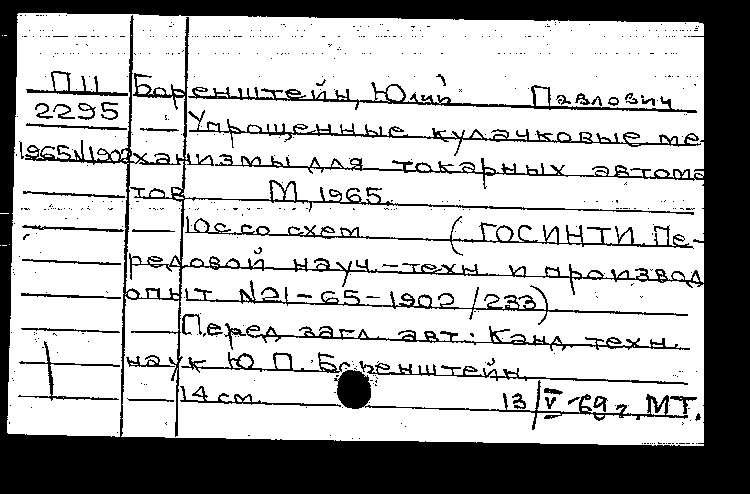 П11 Боренштейн, Юлий Павлович
2295 Упрощенные кулачковые ме-
1965/1902 ханизмы для токарных автома
тов М, 1965.
10с со схем. (ГОСИНТИ. Пе-
редовой науч.-техн. и производ
опыт №21-65-1902/233)
Перед загл. авт.: Канд. техн.
наук Ю. П. Боренштейн.
14 см. 13/V-69 г. МТ.